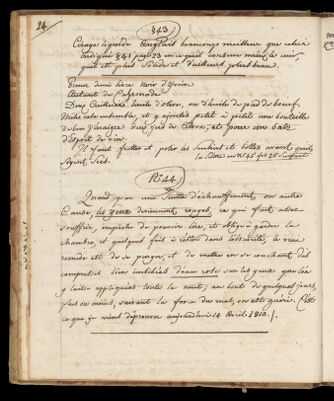 24
§43
Cirage liquide Anglais beaucoup meilleur que celui
indiqué §41 page 23 en ce qu'il conserve mieux le cuir,
qu'il est plus solide et d'ailleurs plus beau.
Prenez demi livre noir d'ivoire
Autant de Cassonade
Deux Cuillerées huile d'olive, ou d'huile de pied de boeuf.
Mêlez cela ensemble, et y ajoutez petit à petit une bouteille
de bon Vinaigre, du jus de Citron, et pour six bats
d'Esprit de vin
Il faut frotter et polir les souliers et bottes avant qu'ils
soyent secs.
la Suite au N° 45 fol. 25 Suivant
N° 44
Quand par une Suite d'échauffement ou autre
Cause, les yeux deviennent rouges, ce qui fait assez
souffrir, empêche de pouvoir lire, et oblige à garder la
chambre, et quelques fois à rester dans l'obscurité, le vrai
remède est de se purger, et de mettre en se couchant des
compresses bien imbibées d'eau rose sur les yeux que l'on
y laisse appliquées toute la nuit; au bout de quelques jours,
plus ou moins, suivant la force du mal, on est guéri. C'est
ce que je viens d'éprouver aujourd'hui 14 Avril 1810.